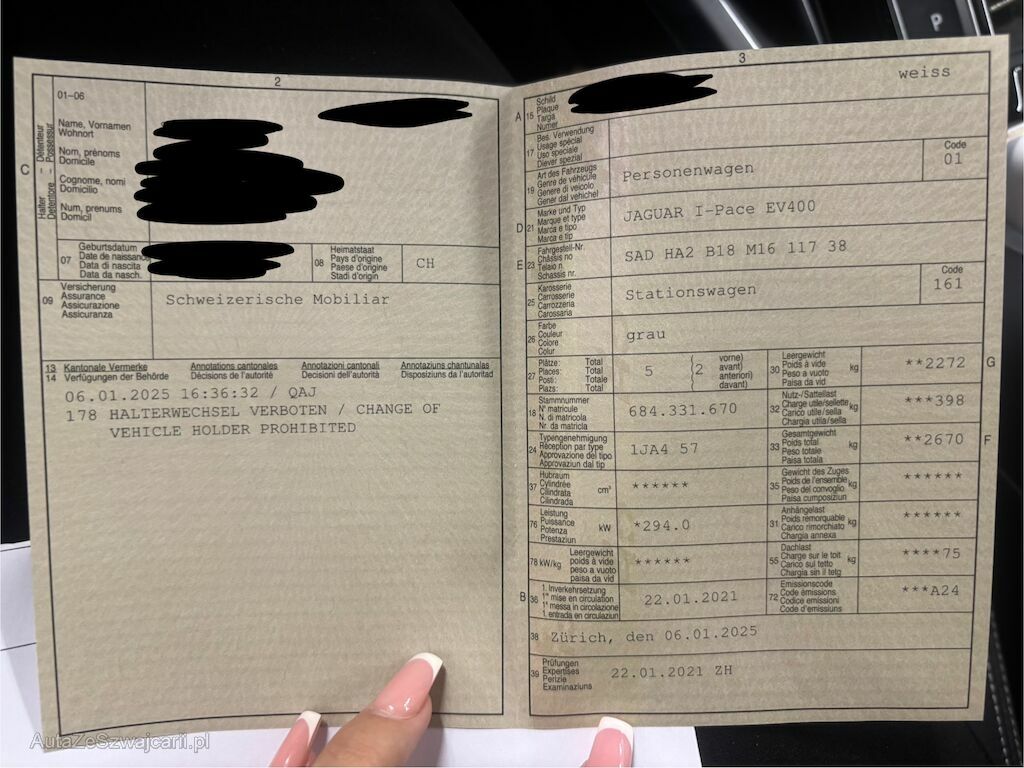 P
2
01-06
Halter – Détenteur
Detentore – Possessur
C
Name, Vornamen
Wohnort
Nom, prénoms
Domicile
Cognome, nomi
Domicilio
Num, prenums
Domicil
07
Geburtsdatum
Date de naissance
Data di nascita
Data da nasch.
08
Heimatstaat
Pays d'origine
Paese d'origine
Stadi d'origin
CH
09
Versicherung
Assurance
Assicurazione
Assicuranza
Schweizerische Mobiliar
13 Kantonale Vermerke Annotations cantonales Annotazioni cantonali Annotaziuns chantunalas
14 Verfügungen der Behörde Décisions de l'autorité Decisioni dell'autorità Disposiziuns da l'autoritad
06.01.2025 16:36:32 / QAJ
178 HALTERWECHSEL VERBOTEN / CHANGE OF
VEHICLE HOLDER PROHIBITED
3
A 15
Schild
Plaque
Targa
Numer
weiss
17
Bes. Verwendung
Usage spécial
Uso speciale
Diever spezial
19
Art des Fahrzeugs
Genre de véhicule
Genere di veicolo
Gener dal vehichel
Personenwagen
Code
01
D 21
Marke und Typ
Marque et type
Marca e tipo
Marca e tip
JAGUAR I-Pace EV400
E 23
Fahrgestell-Nr.
Châssis no
Telaio n.
Schassis nr.
SAD HA2 B18 M16 117 38
25
Karosserie
Carrosserie
Carrozzeria
Carossaria
Stationswagen
Code
161
26
Farbe
Couleur
Colore
Colur
grau
27
Plätze: Total
Places: Total
Posti: Totale
Plazs: Total
5
(2
vorne)
avant)
anteriori)
davant)
30
Leergewicht
Poids à vide
Peso a vuoto
Paisa da vid
kg
**2272
G
18
Stammnummer
N° matricule
N. di matricola
N. da matricla
684.331.670
32
Nutz-/Sattellast
Charge utile/sellette
Carico utile/sella
Chargia utila/sella
kg
***398
24
Typengenehmigung
Réception par type
Approvazione del tipo
Approvaziun dal tip
1JA4 57
33
Gesamtgewicht
Poids total
Peso totale
Paisa totala
kg
**2670
F
37
Hubraum
Cylindrée
Cilindrata
Cilindrada
cm³
******
35
Gewicht des Zuges
Poids de l'ensemble
Peso del convoglio
Paisa cumposiziun
kg
******
76
Leistung
Puissance
Potenza
Prestaziun
kW
*294.0
31
Anhängelast
Poids remorquable
Carico rimorchiato
Chargia annexa
kg
******
78 kW/kg
Leergewicht
poids à vide
peso a vuoto
paisa da vid
******
55
Dachlast
Charge sur le toit
Carico sul tetto
Chargia sin il tetg
kg
****75
B 36
1. Inverkehrsetzung
1re mise en circulation
1a messa in circolazione
1. entrada en circulaziun
22.01.2021
72
Emissionscode
Code émissions
Codice emissioni
Code d'emissiuns
***A24
38 Zürich, den 06.01.2025
39
Prüfungen
Expertises
Perizie
Examinaziuns
22.01.2021 ZH
AutaZeSzwajcarii.pl